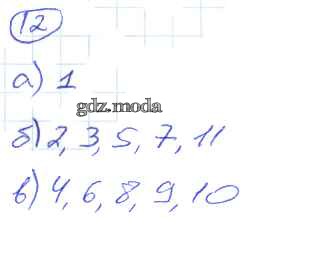 12
а) 1
gdz.moda
б) 2, 3, 5, 7, 11
в) 4, 6, 8, 9, 10